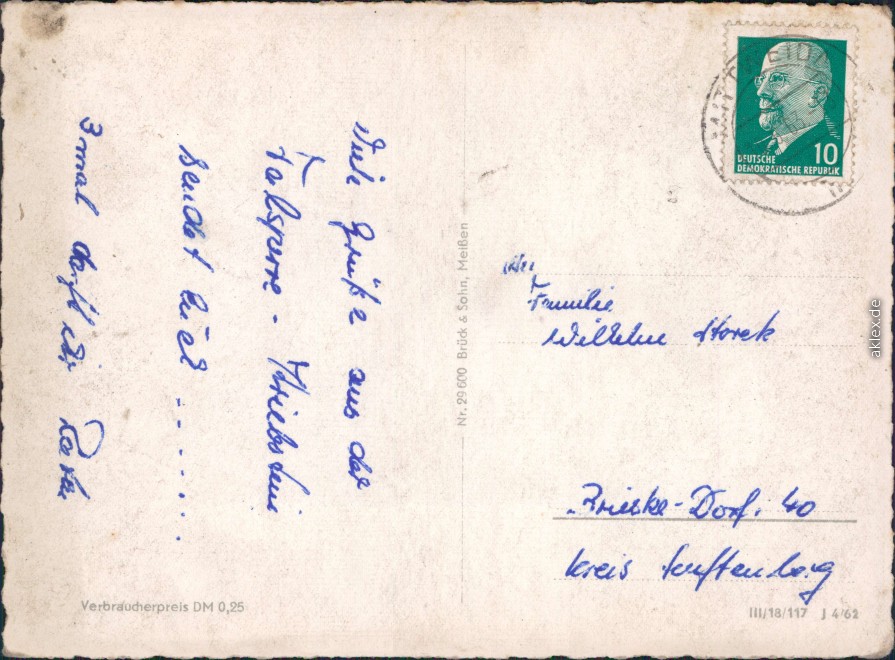 Viele Grüße aus der
Talsperre - Kriebstein
sendet Euch - - - - - -
3 mal dürft Ihr Raten
Nr. 29 600 Brück & Sohn, Meißen
Verbraucherpreis DM 0,25
MITTWEIDA
DEUTSCHE
DEMOKRATISCHE REPUBLIK
10
An
Familie
Wilhelm Storck
Brieske-Dorf. 40
Kreis Senftenberg
III/18/117 J 4/62
aklex.de